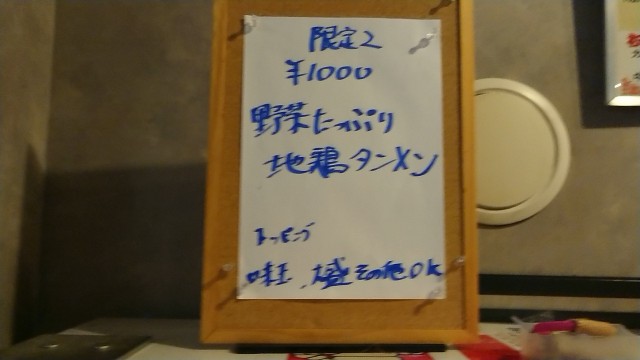 限定2
¥1000
野菜たっぷり
地鶏タンメン
トッピング
味玉、大盛その他OK